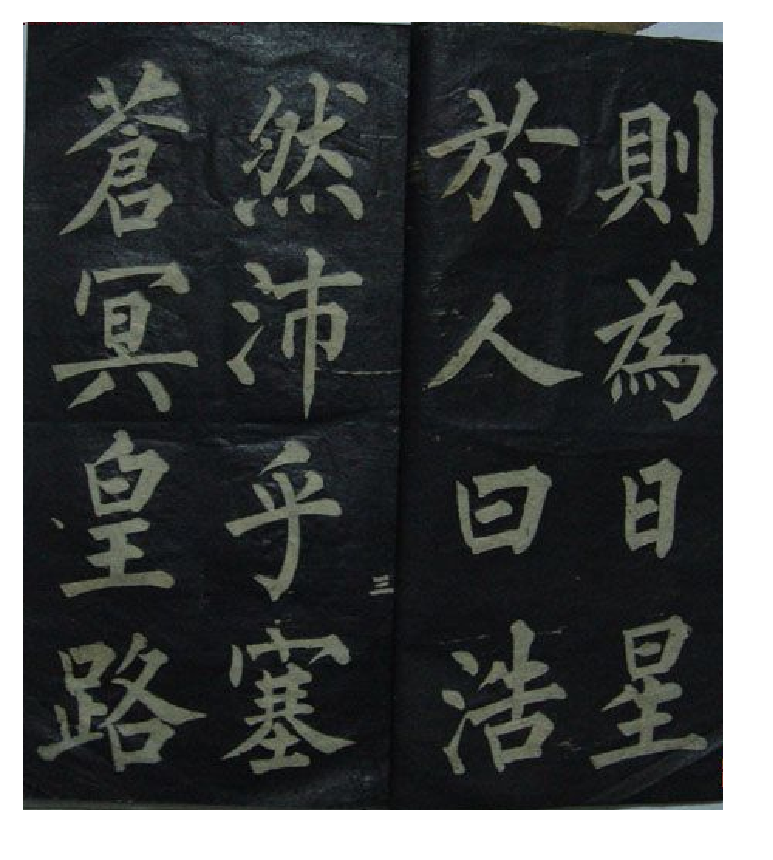 則為日星
於人曰浩
然沛乎塞
蒼冥皇路
三